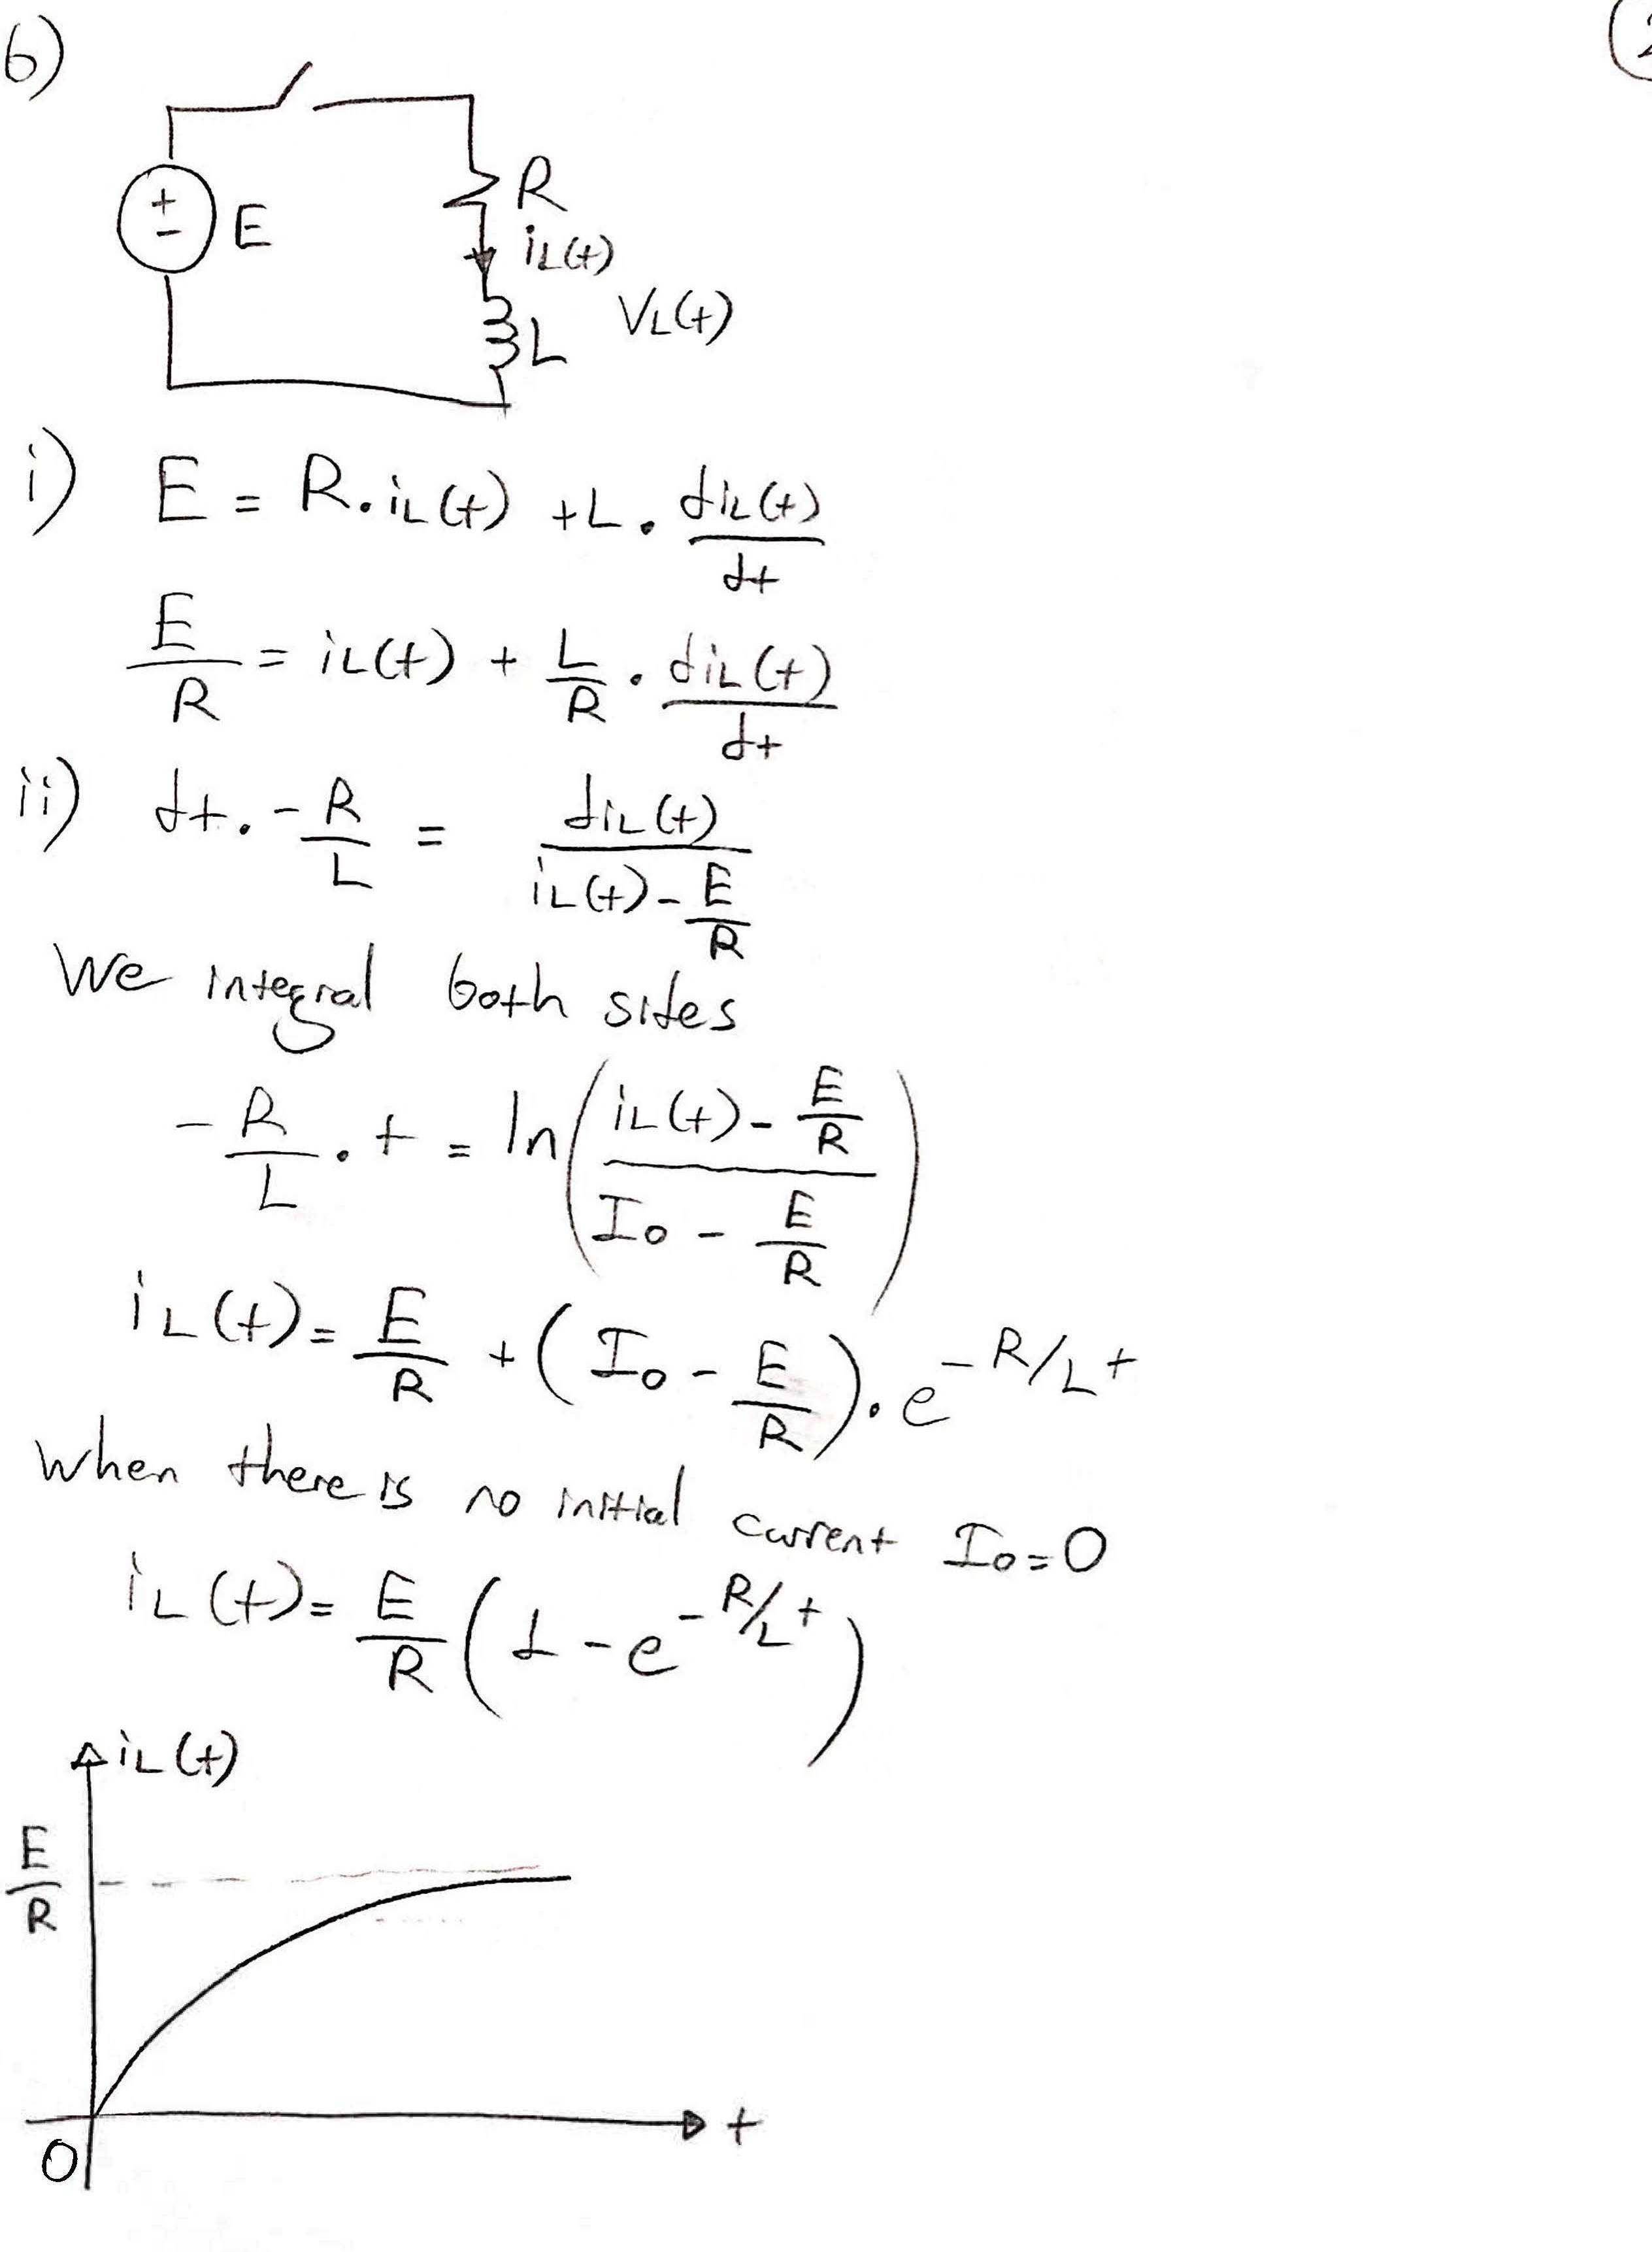 6)
+
-
E
R
iL(t)
L
VL(t)
i) E = R.iL(t) + L . diL(t)/dt
E/R = iL(t) + L/R . diL(t)/dt
ii) dt. -R/L = diL(t)/(iL(t) - E/R)
We integral both sides
-R/L . t = ln((iL(t) - E/R)/(I0 - E/R))
iL(t) = E/R + (I0 - E/R).e^-R/L t
when there is no initial current I0 = 0
iL(t) = E/R (1 - e^-R/L t)
iL(t)
E/R
0
t